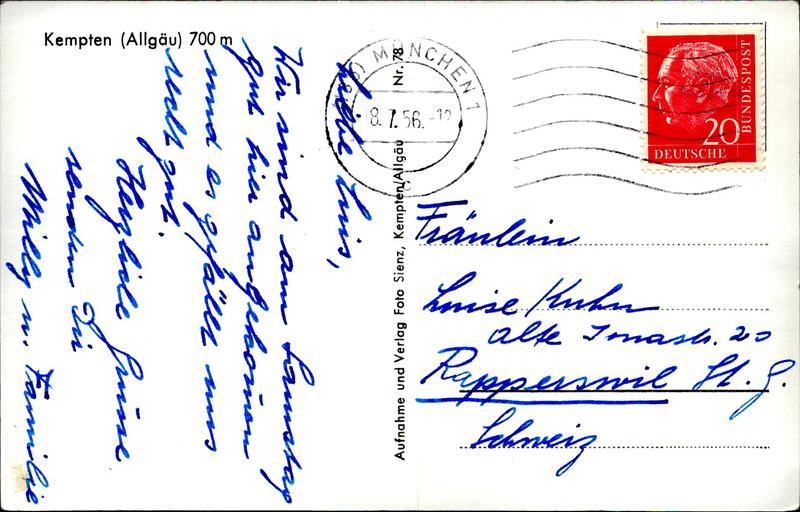 Kempten (Allgäu) 700 m
Liebe Luis,
Wir sind am Samstag
gut hier angekommen
und es gefällt uns
recht gut.
Herzliche Grüsse
senden Dir
Milly u. Familie
Aufnahme und Verlag Foto Sienz, Kempten/Allgäu Nr. 78
MÜNCHEN 1
8.7.56.-12
c
20
DEUTSCHE
BUNDESPOST
Fräulein
Luise Kuhn
alte Jonastr. 20
Rapperswil St. G.
Schweiz